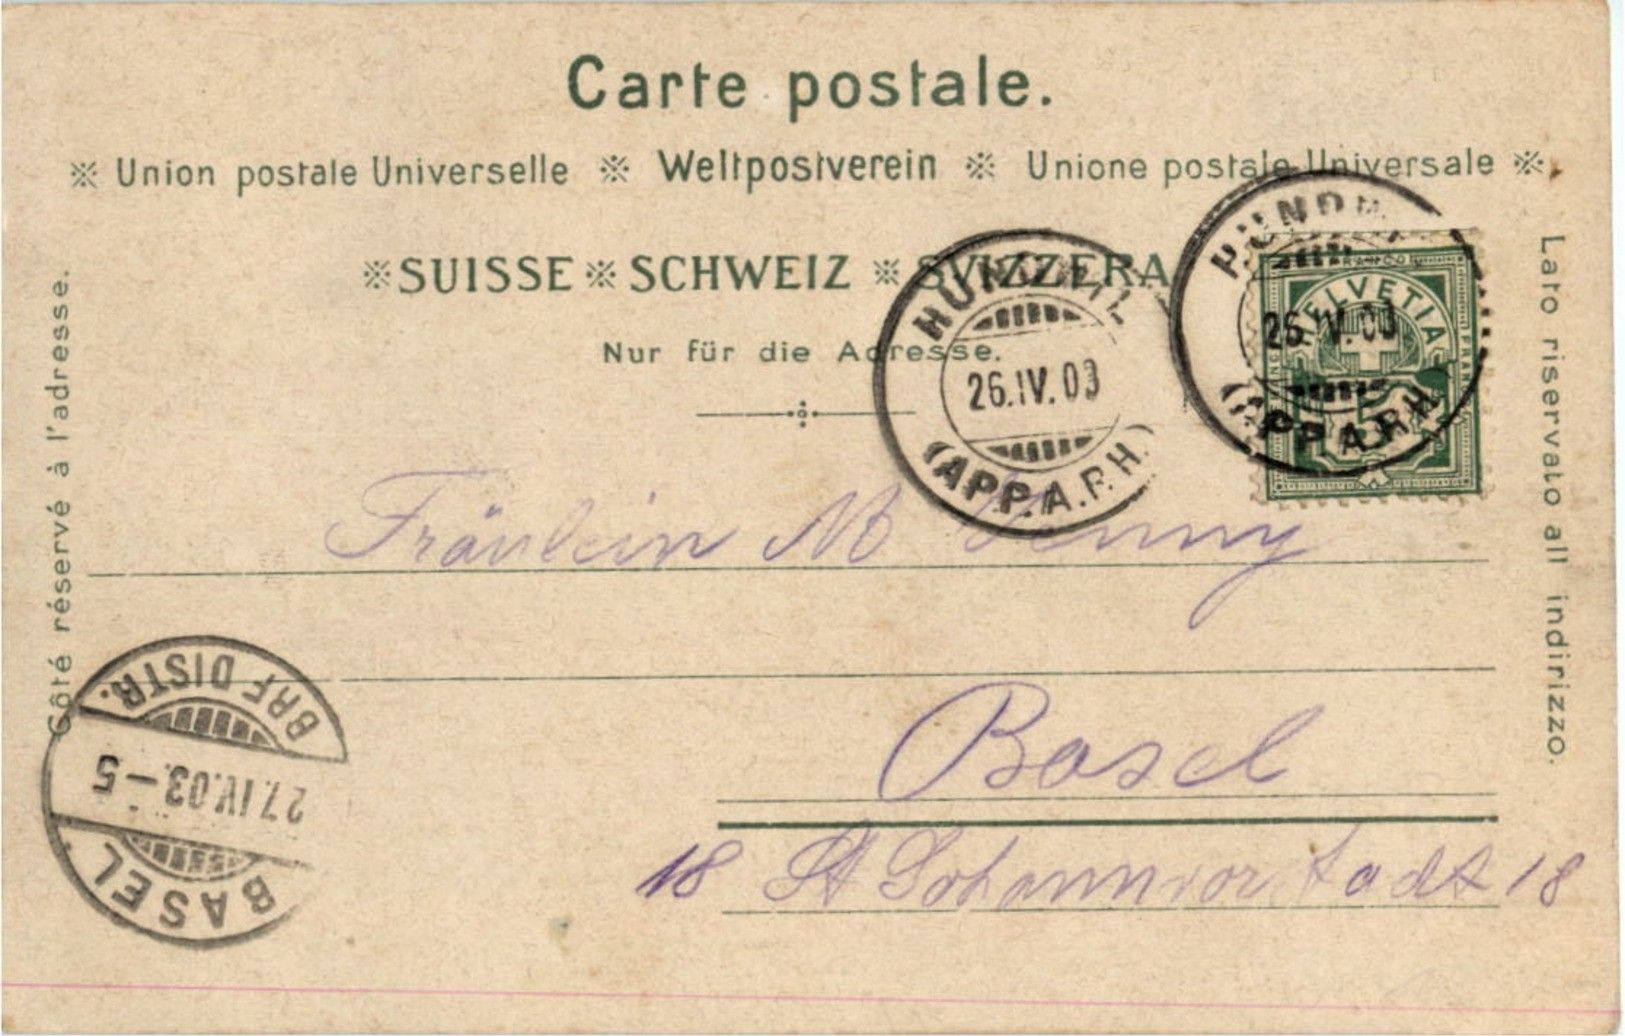 Carte postale.
※ Union postale Universelle ※ Weltpostverein ※ Unione postale Universale ※
※ SUISSE ※ SCHWEIZ ※ SVIZZERA
Nur für die Adresse.
Côté réservé à l'adresse.
Lato riservato all indirizzo.
HUNDWIL
26.IV.03
(APP.A.RH.)
HUNDWIL
26.IV.03
(APP.A.RH.)
FRANCO
HELVETIA
5
Fräulein M
Basel
18 St Johannvorstadt 18
BRF DISTR.
27.IV.03.-5
BASEL